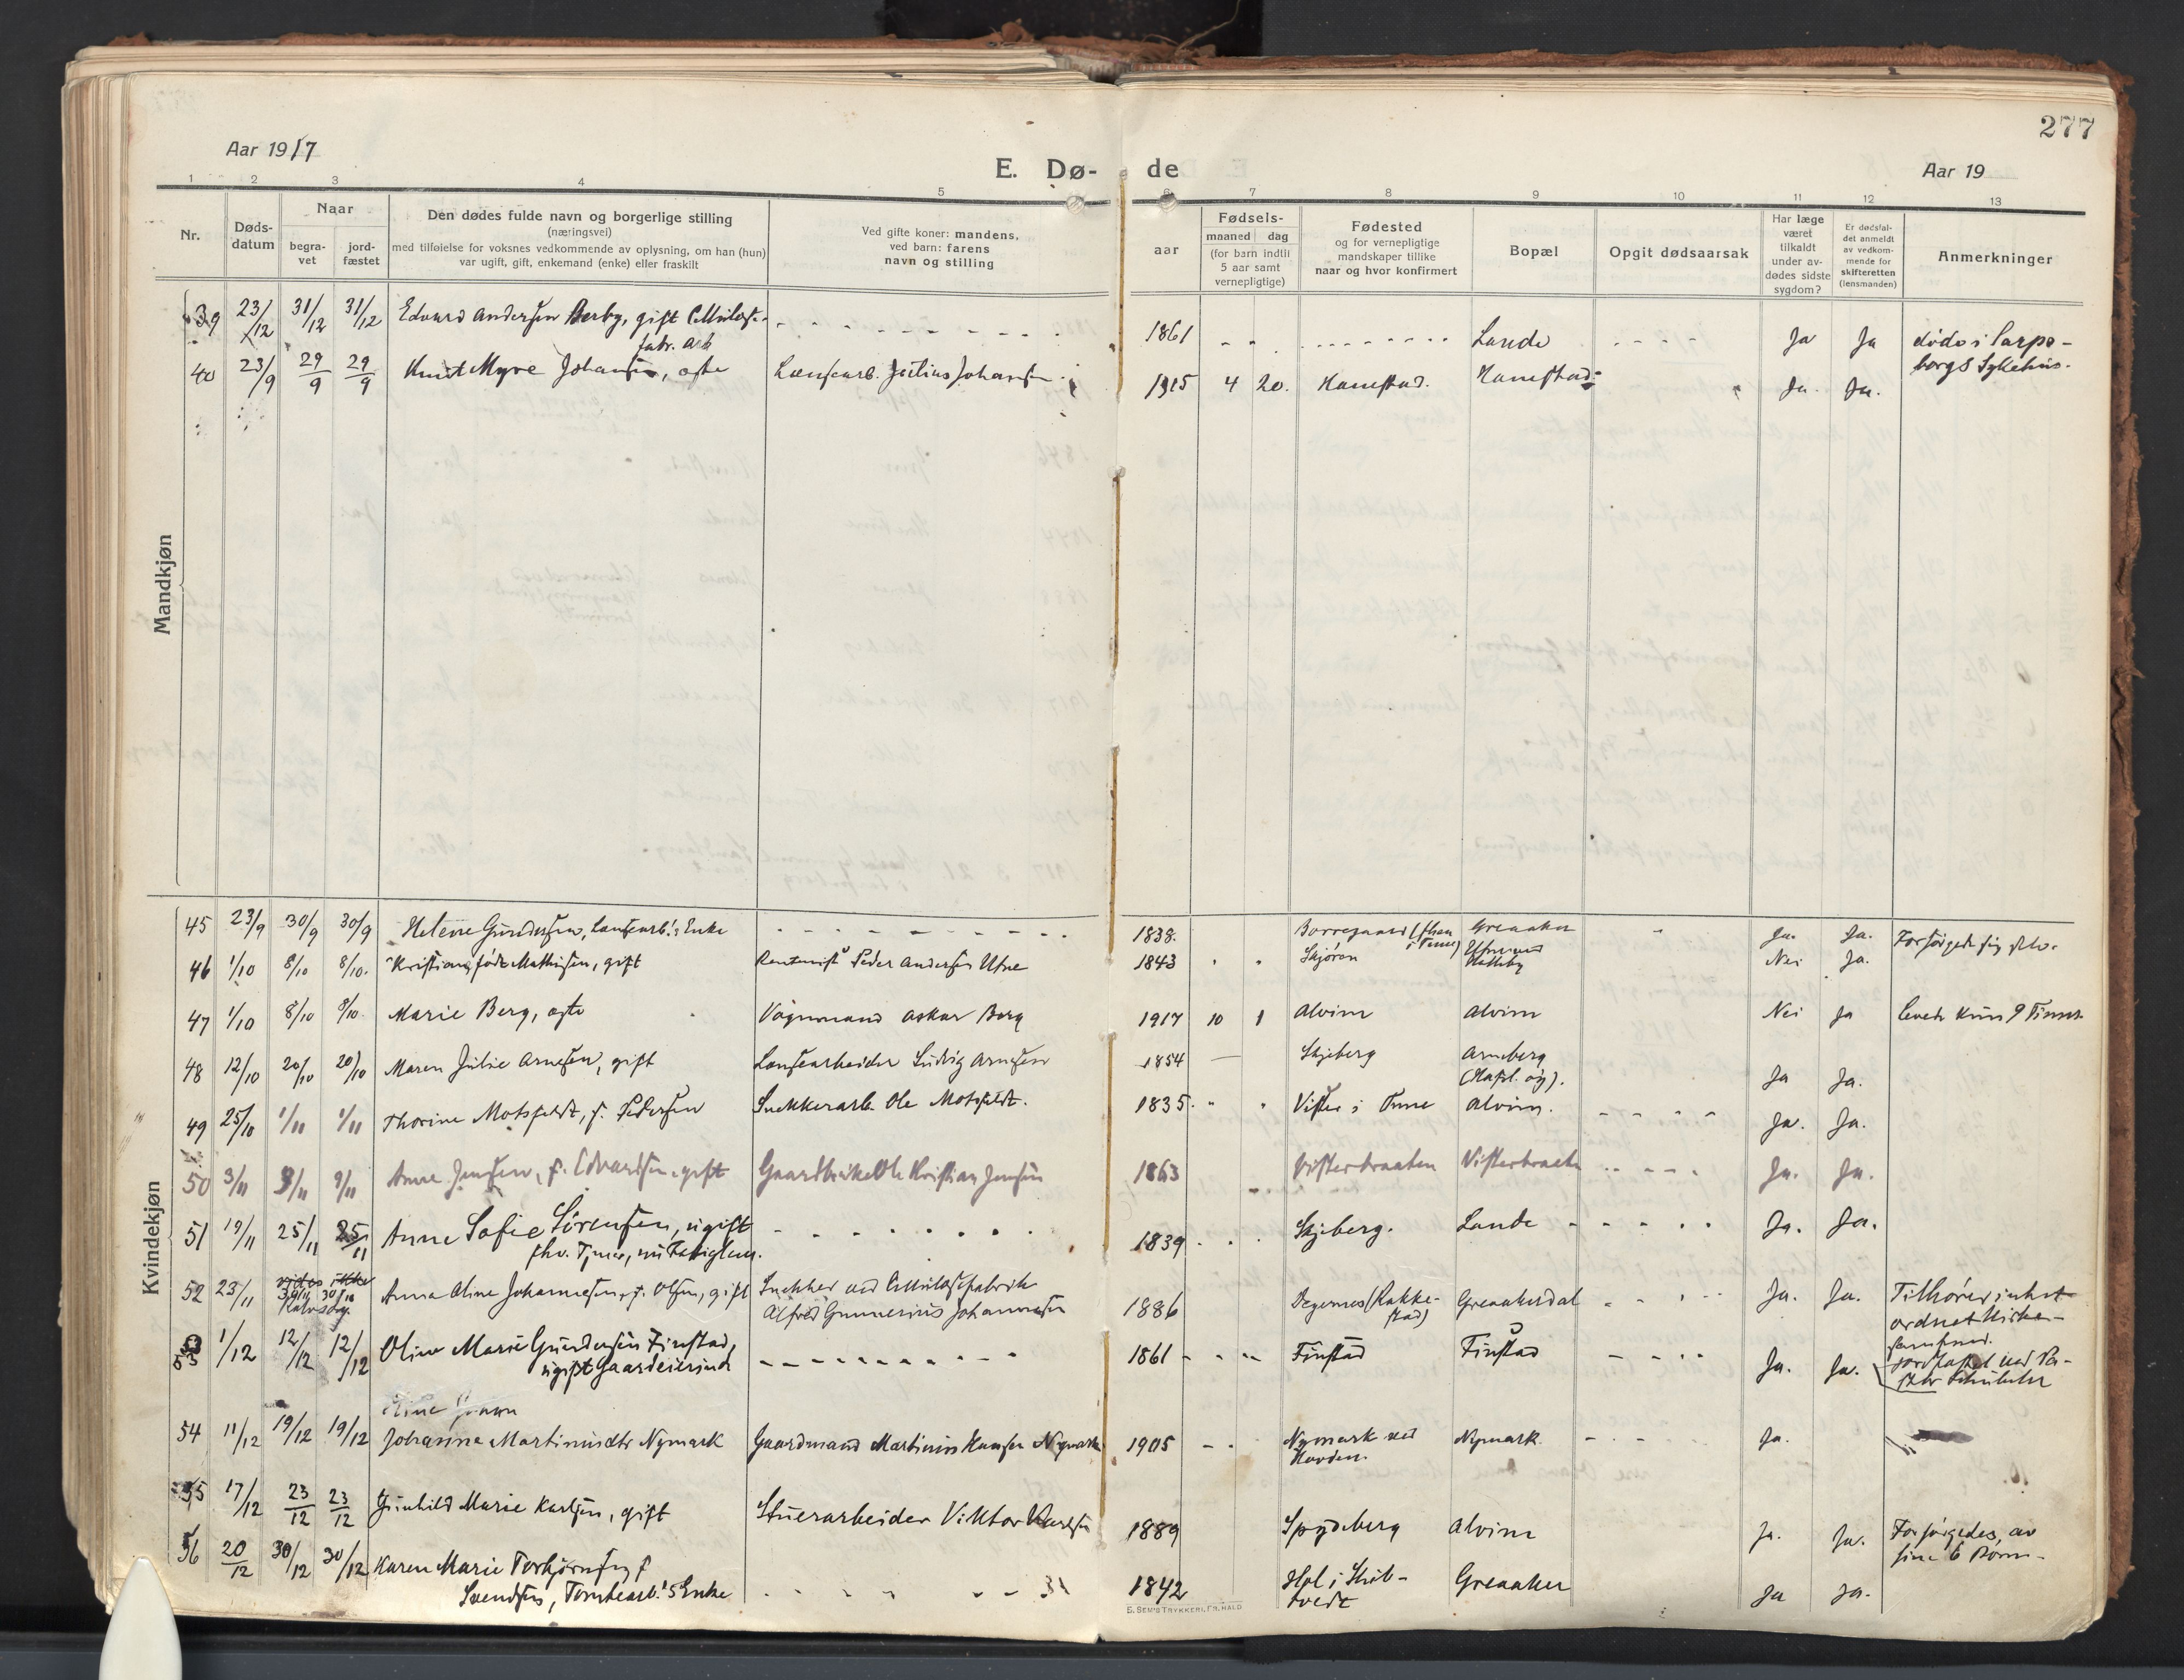 277
Aar 1917
E. Dø- de
Aar 19
1 2 3 4 5 6 7 8 9 10 11 12 13
Nr.
Døds-
datum
Naar
begra-
vet
jord-
fæstet
Den dødes fulde navn og borgerlige stilling
(næringsvei)
med tilføielse for voksnes vedkommende av oplysning, om han (hun)
var ugift, gift, enkemand (enke) eller fraskilt
Ved gifte koner: mandens,
ved barn: farens
navn og stilling
Fødsels-
aar
maaned dag
(for barn indtil
5 aar samt
vernepligtige)
Fødested
og for vernepligtige
mandskaper tillike
naar og hvor konfirmert
Bopæl
Opgit dødsaarsak
Har læge
været
tilkaldt
under av-
dødes sidste
sygdom?
Er dødsfal-
det anmeldt
av vedkom-
mende for
skifteretten
(lensmanden)
Anmerkninger
Mandkjøn
39 23/12 31/12 31/12 Edvard Andersen Berby, gift Cellulose- 1861 Lande Ja Ja døde i Sarps-
fabr. arb borgs Sykehus.
40 23/9 29/9 29/9 Knut Myre Johansen, ægte Lænsearb. Julius Johansen 1915 4 20. Hanestad. Hanestad Ja. Ja.
Kvindekjøn
45 23/9 30/9 30/9 Helene Gundersen, Lænsearb.'s Enke 1838. Borregaard Greaaker Ja. Ja. Forsørgede sig selv.
46 1/10 8/10 8/10. Kristiane født Mathisen, gift Peder Andersen Utne 1843 Skjøren Nei Ja.
47 1/10 8/10 8/10. Marie Berg, ægte Vognmand Oskar Berg 1917 10 1 Alvim Alvim Nei Ja levede kun 9 Timer
48 12/10 20/10 20/10 Maren Julie Arnesen, gift Lænsearbeider Ludvig Arnesen 1854 Skjeberg Arneberg
(Hafsl. og). Ja Ja.
49 25/10 1/11 1/11 Thorine Motsfeldt, f. Pedersen Snekkerarb. Ole Motsfeldt. 1835. Vister i Tune Alvim. Ja. Ja.
50 3/11 9/11 9/11 Anne Jensen, f. Edvardsen, gift Gaardbruker Ole Kristian Jensen 1863 Visterbraaten Visterbraaten Ja. Ja.
51 19/11 25/11 25/11 Anne Sofie Sørensen, ugift 1839 Skjeberg. Lande Ja. Ja.
fhv. Tjener, nu Fattiglem.
52 23/11 vides ikke Anna Oline Johannesen, f. Olsen, gift Snekker ved Cellulosefabrik 1886 Degernes (Rakke-
stad) Greaakerdal Ja. Ja. Tilhører intet
30/11 30/11 Alfred Gunnerius Johannesen ordnet Kirke-
samfund.
53 1/12 12/12 12/12 Oline Marie Gundersen Finstad, 1861 Finstad Finstad Ja. Ja. jordfæstet ved Pa-
ugift Gaardeierinde
54 11/12 19/12 19/12 Johanne Martinusdtr Nymark Gaardmand Martinius Hansen Nymark 1905 Nymark ved
Navden. Nymark. Ja.
55 17/12 23/12 23/12 Gunhild Marie Karlsen, gift Stuerarbeider Viktor Karlsen 1889 Spydeberg Alvim Ja. Ja. Forsørgedes av
sine 6 Børn
56 20/12 30/12 30/12 Karen Marie Torbjørnsen f. 1842 Greaaker Ja Ja.
Svendsen, Tomtearb.'s Enke
E. SEM'S TRYKKERI, FR.HALD